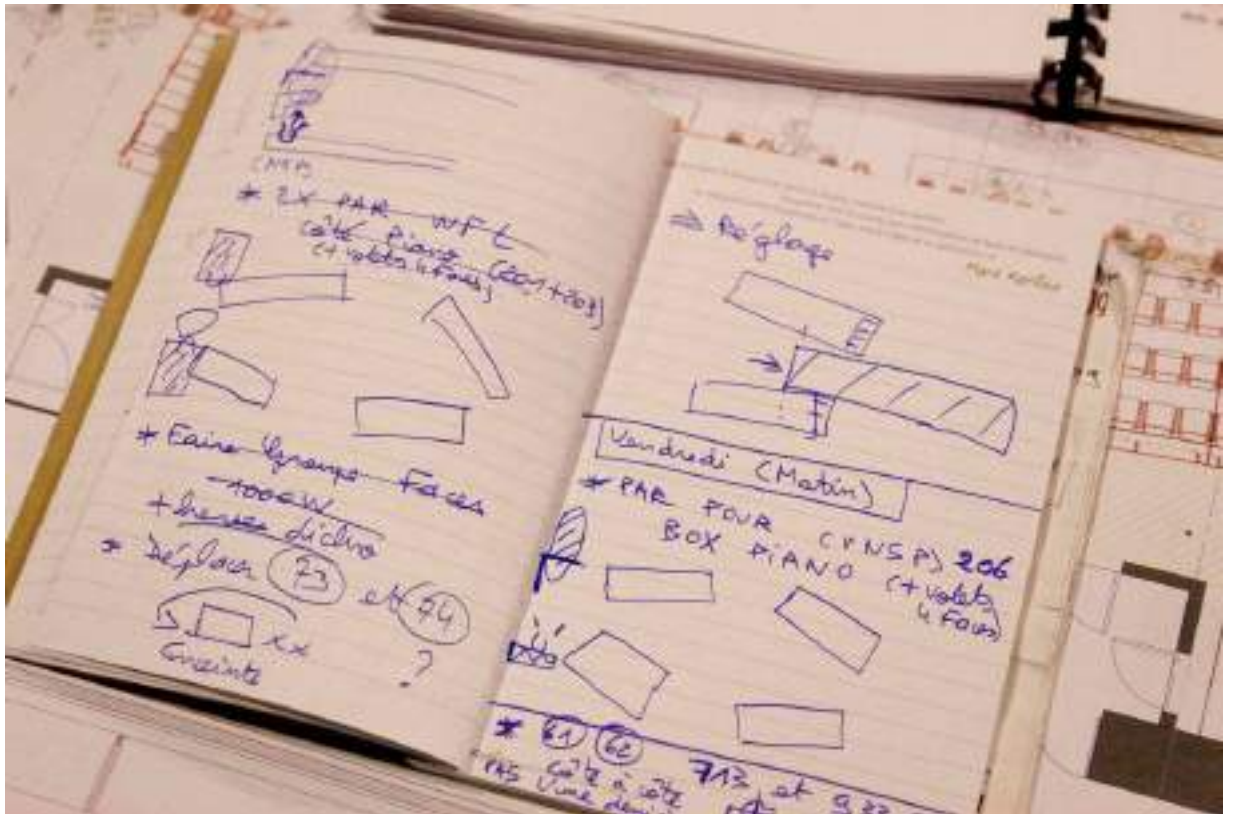 (CNSP)
* 2X PAR WFL
côté Piano (201+203)
(+ volets 4 faces)
* Faire groupe Faces
1000W
+ dichro
* Déplacer 73 et 74
?
Enceinte
⇒ Réglage
Vendredi (Matin)
* PAR POUR (CNSP) 206
BOX PIANO (+ volets
4 Faces)
* 61 62 713 et
côté à côte
PAS